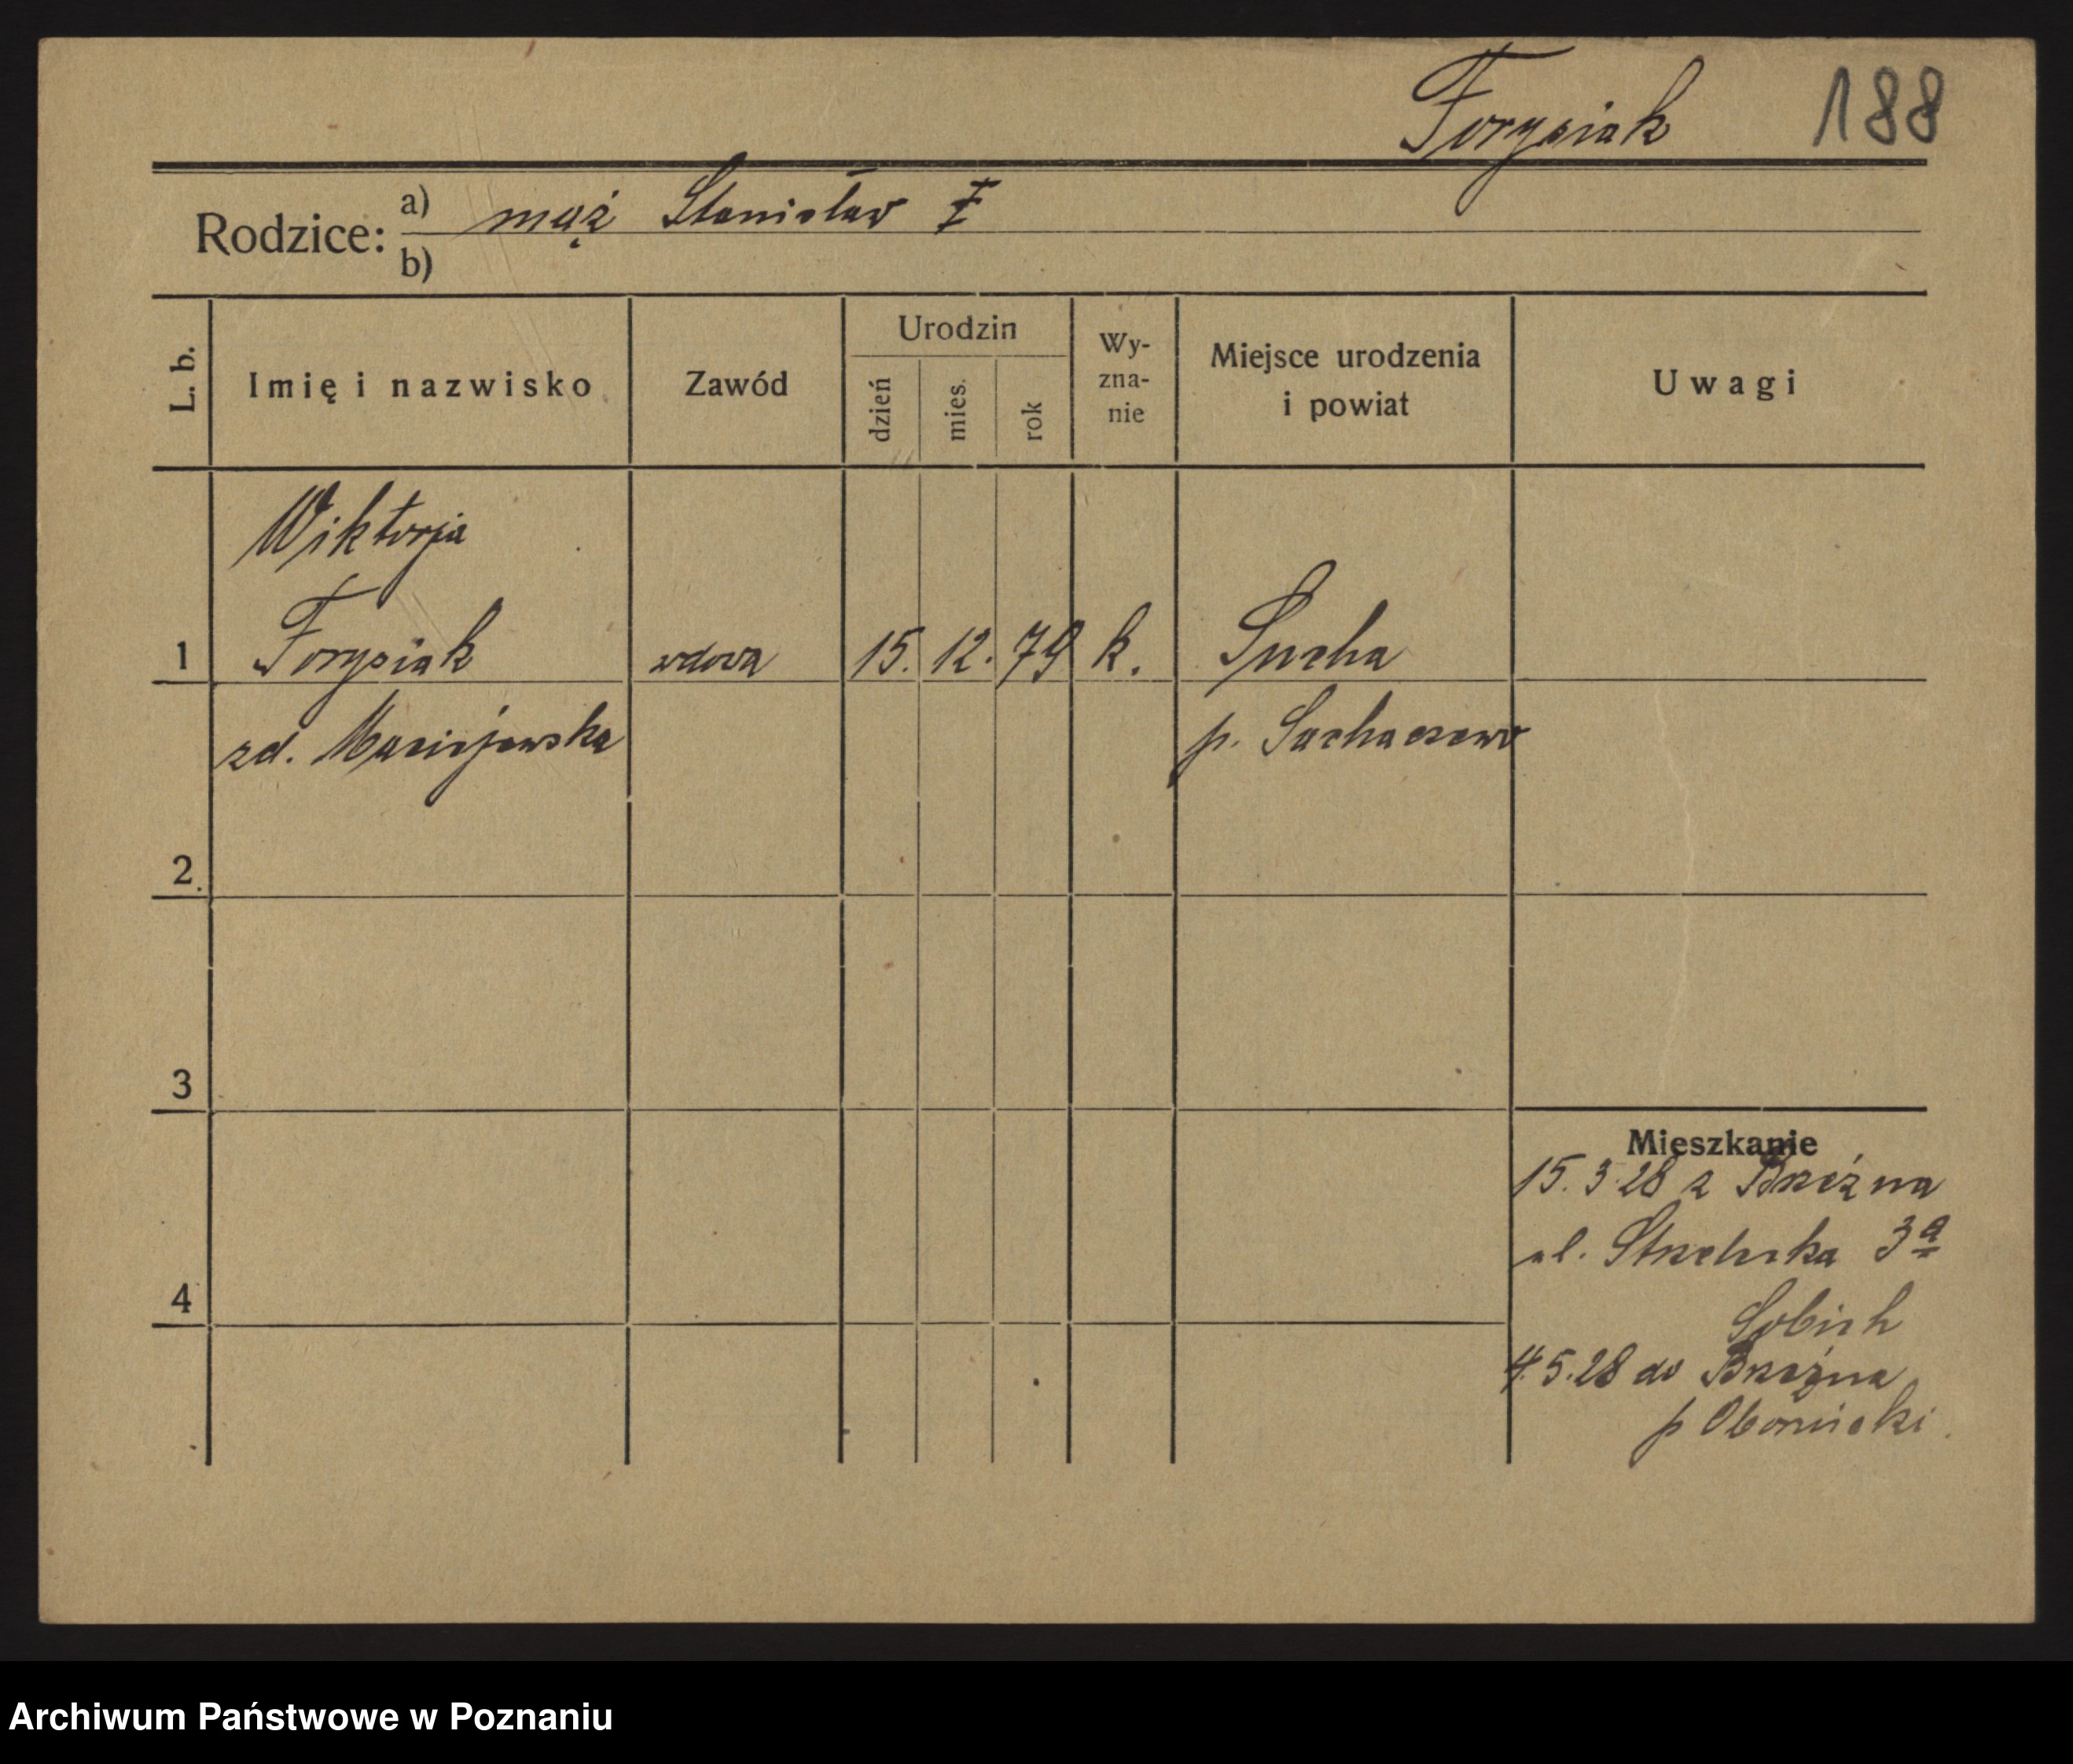 Forysiak 188
Rodzice: a) mąż Stanisław
b)
L. b. Imię i nazwisko Zawód Urodzin dzień mies. rok Wy-zna-nie Miejsce urodzenia i powiat Uwagi
Wiktorja
1 Forysiak wdowa 15. 12. 79 k. Sucha
zd. Maciejewska p. Sochaczew
2.
3
Mieszkanie
15.3.28 z Brzeźna
ul. Strzelecka 3a
4
4.5.28 do Brzeźna
p Obornicki
Archiwum Państwowe w Poznaniu